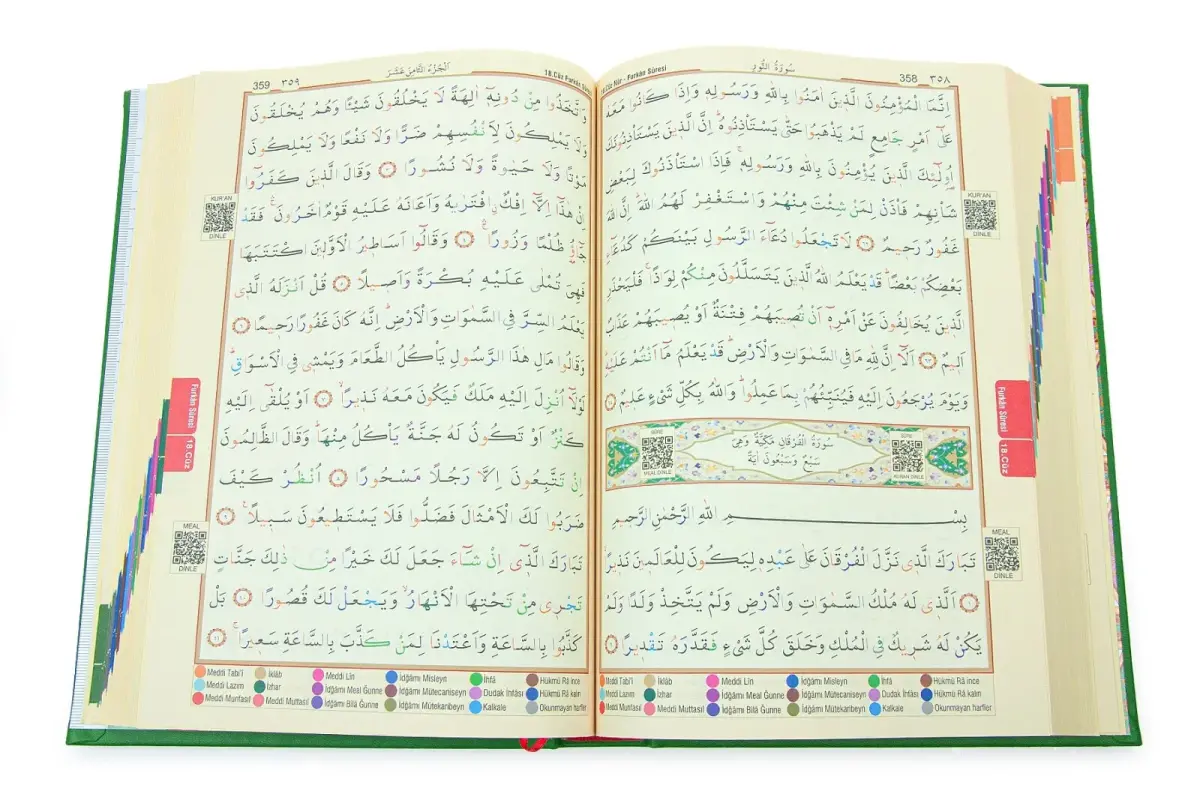 سُورَةُ النُّورِ
18.Cüz Nûr - Furkân Sûresi
358 ٣٥٨
اِنَّمَا الْمُؤْمِنُونَ الَّذ۪ينَ اٰمَنُوا بِاللّٰهِ وَرَسُولِه۪ وَاِذَا كَانُوا مَعَهُ
عَلٰٓى اَمْرٍ جَامِعٍ لَمْ يَذْهَبُوا حَتّٰى يَسْتَأْذِنُوهُۜ اِنَّ الَّذ۪ينَ يَسْتَأْذِنُونَكَ
اُو۬لٰٓئِكَ الَّذ۪ينَ يُؤْمِنُونَ بِاللّٰهِ وَرَسُولِه۪ۚ فَاِذَا اسْتَأْذَنُوكَ لِبَعْضِ
شَأْنِهِمْ فَأْذَنْ لِمَنْ شِئْتَ مِنْهُمْ وَاسْتَغْفِرْ لَهُمُ اللّٰهَۜ اِنَّ اللّٰهَ
غَفُورٌ رَح۪يمٌ ﴿٦٢﴾ لَا تَجْعَلُوا دُعَٓاءَ الرَّسُولِ بَيْنَكُمْ كَدُعَٓاءِ
بَعْضِكُمْ بَعْضًاۜ قَدْ يَعْلَمُ اللّٰهُ الَّذ۪ينَ يَتَسَلَّلُونَ مِنْكُمْ لِوَاذًاۚ فَلْيَحْذَرِ
الَّذ۪ينَ يُخَالِفُونَ عَنْ اَمْرِه۪ٓ اَنْ تُص۪يبَهُمْ فِتْنَةٌ اَوْ يُص۪يبَهُمْ عَذَابٌ
اَل۪يمٌ ﴿٦٣﴾ اَلَٓا اِنَّ لِلّٰهِ مَا فِي السَّمٰوَاتِ وَالْاَرْضِۜ قَدْ يَعْلَمُ مَٓا اَنْتُمْ عَلَيْهِۜ
وَيَوْمَ يُرْجَعُونَ اِلَيْهِ فَيُنَبِّئُهُمْ بِمَا عَمِلُواۜ وَاللّٰهُ بِكُلِّ شَيْءٍ عَل۪يمٌ
SÛRE
MEAL DİNLE
سُورَةُ الْفُرْقَانِ مَكِّيَّةٌ وَهِيَ
سَبْعٌ وَسَبْعُونَ اٰيَةً
SÛRE
KUR'AN DİNLE
بِسْمِ اللّٰهِ الرَّحْمٰنِ الرَّح۪يمِ
تَبَارَكَ الَّذ۪ي نَزَّلَ الْفُرْقَانَ عَلٰى عَبْدِه۪ لِيَكُونَ لِلْعَالَم۪ينَ نَذ۪يرًا
﴿١﴾ اَلَّذ۪ي لَهُ مُلْكُ السَّمٰوَاتِ وَالْاَرْضِ وَلَمْ يَتَّخِذْ وَلَدًا وَلَمْ
يَكُنْ لَهُ شَر۪يكٌ فِي الْمُلْكِ وَخَلَقَ كُلَّ شَيْءٍ فَقَدَّرَهُ تَقْد۪يرًا ﴿٢﴾
KUR'AN
DİNLE
Furkân Sûresi
18.Cüz
MEAL
DİNLE
Meddi Tabi'î İklâb Meddi Lîn İdğâmı Misleyn İhfâ Hükmü Râ ince
Meddi Lazım İzhar İdğâmı Meal Ğunne İdğâmı Mütecaniseyn Dudak İhfâsı Hükmü Râ kalın
Meddi Munfasıl Meddi Muttasıl İdğâmı Bilâ Ğunne İdğâmı Mütekaribeyn Kalkale Okunmayan harfler
359 ٣٥٩
اَلْجُزْءُ الثَّامِنَ عَشَرَ
18.Cüz Furkân
وَاتَّخَذُوا مِنْ دُونِه۪ٓ اٰلِهَةً لَا يَخْلُقُونَ شَيْـًٔا وَهُمْ يُخْلَقُونَ
وَلَا يَمْلِكُونَ لِاَنْفُسِهِمْ ضَرًّا وَلَا نَفْعًا وَلَا يَمْلِكُونَ
مَوْتًا وَلَا حَيٰوةً وَلَا نُشُورًا ﴿٣﴾ وَقَالَ الَّذ۪ينَ كَفَرُٓوا
اِنْ هٰذَٓا اِلَّٓا اِفْكٌۨ افْتَرٰيهُ وَاَعَانَهُ عَلَيْهِ قَوْمٌ اٰخَرُونَۚ فَقَدْ
جَٓاؤُ۫ ظُلْمًا وَزُورًاۚ ﴿٤﴾ وَقَالُٓوا اَسَاط۪يرُ الْاَوَّل۪ينَ اكْتَتَبَهَا
فَهِيَ تُمْلٰى عَلَيْهِ بُكْرَةً وَاَص۪يلًا ﴿٥﴾ قُلْ اَنْزَلَهُ الَّذ۪ي
يَعْلَمُ السِّرَّ فِي السَّمٰوَاتِ وَالْاَرْضِۜ اِنَّهُ كَانَ غَفُورًا رَح۪يمًا ﴿٦﴾
وَقَالُوا مَالِ هٰذَا الرَّسُولِ يَأْكُلُ الطَّعَامَ وَيَمْش۪ي فِي الْاَسْوَاقِۜ
لَوْلَٓا اُنْزِلَ اِلَيْهِ مَلَكٌ فَيَكُونَ مَعَهُ نَذ۪يرًاۙ ﴿٧﴾ اَوْ يُلْقٰٓى اِلَيْهِ
كَنْزٌ اَوْ تَكُونُ لَهُ جَنَّةٌ يَأْكُلُ مِنْهَاۜ وَقَالَ الظَّالِمُونَ
اِنْ تَتَّبِعُونَ اِلَّا رَجُلًا مَسْحُورًا ﴿٨﴾ اُنْظُرْ كَيْفَ
ضَرَبُوا لَكَ الْاَمْثَالَ فَضَلُّوا فَلَا يَسْتَط۪يعُونَ سَب۪يلًاۚ ﴿٩﴾
تَبَارَكَ الَّذ۪ٓي اِنْ شَٓاءَ جَعَلَ لَكَ خَيْرًا مِنْ ذٰلِكَ جَنَّاتٍ
تَجْر۪ي مِنْ تَحْتِهَا الْاَنْهَارُۙ وَيَجْعَلْ لَكَ قُصُورًا ﴿١٠﴾ بَلْ
كَذَّبُوا بِالسَّاعَةِ وَاَعْتَدْنَا لِمَنْ كَذَّبَ بِالسَّاعَةِ سَع۪يرًاۚ ﴿١١﴾
KUR'AN
DİNLE
Furkân Sûresi
18.Cüz
MEAL
DİNLE
Meddi Tabi'î İklâb Meddi Lîn İdğâmı Misleyn İhfâ Hükmü Râ ince
Meddi Lazım İzhar İdğâmı Meal Ğunne İdğâmı Mütecaniseyn Dudak İhfâsı Hükmü Râ kalın
Meddi Munfasıl Meddi Muttasıl İdğâmı Bilâ Ğunne İdğâmı Mütekaribeyn Kalkale Okunmayan harfler